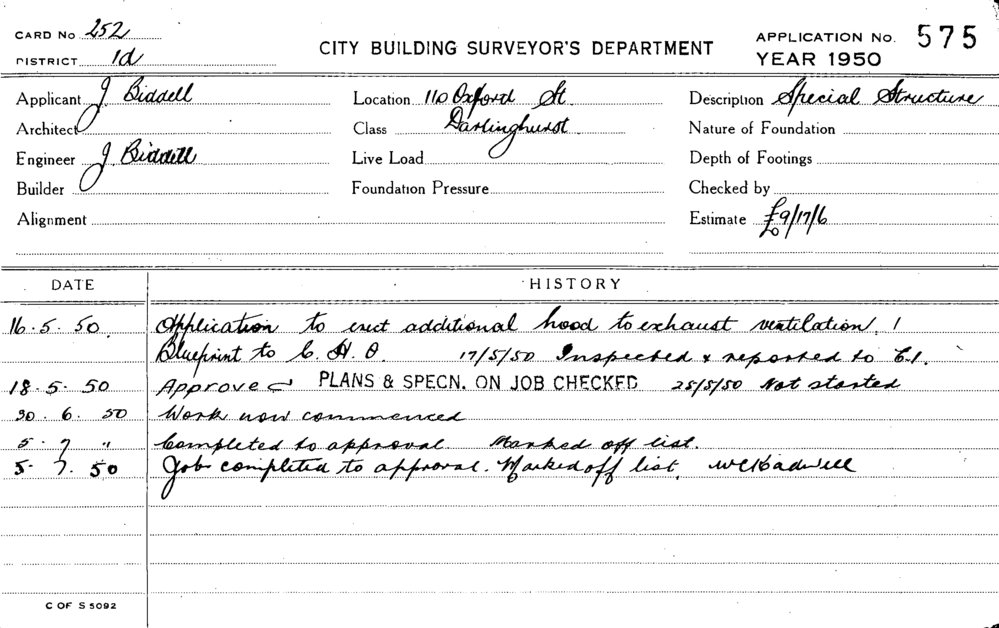 CARD No 252
DISTRICT 1d
CITY BUILDING SURVEYOR'S DEPARTMENT
APPLICATION No. 575
YEAR 1950
Applicant J Biddell
Location 110 Oxford St
Description Special Structure
Architect
Class Darlinghurst
Nature of Foundation
Engineer J Biddell
Live Load
Depth of Footings
Builder
Foundation Pressure
Checked by
Alignment
Estimate £9/17/6
DATE HISTORY
16.5.50 Application to erect additional hood to exhaust ventilation. 1
Blueprint to C.H.O. 17/5/50 Inspected & reported to C.I.
18.5.50 Approved PLANS & SPECN. ON JOB CHECKED 25/5/50 Not started
30.6.50 Work now commenced
5.7 " Completed to approval. Marked off list.
5.7.50 Job completed to approval. Marked off list.
C OF S 5092